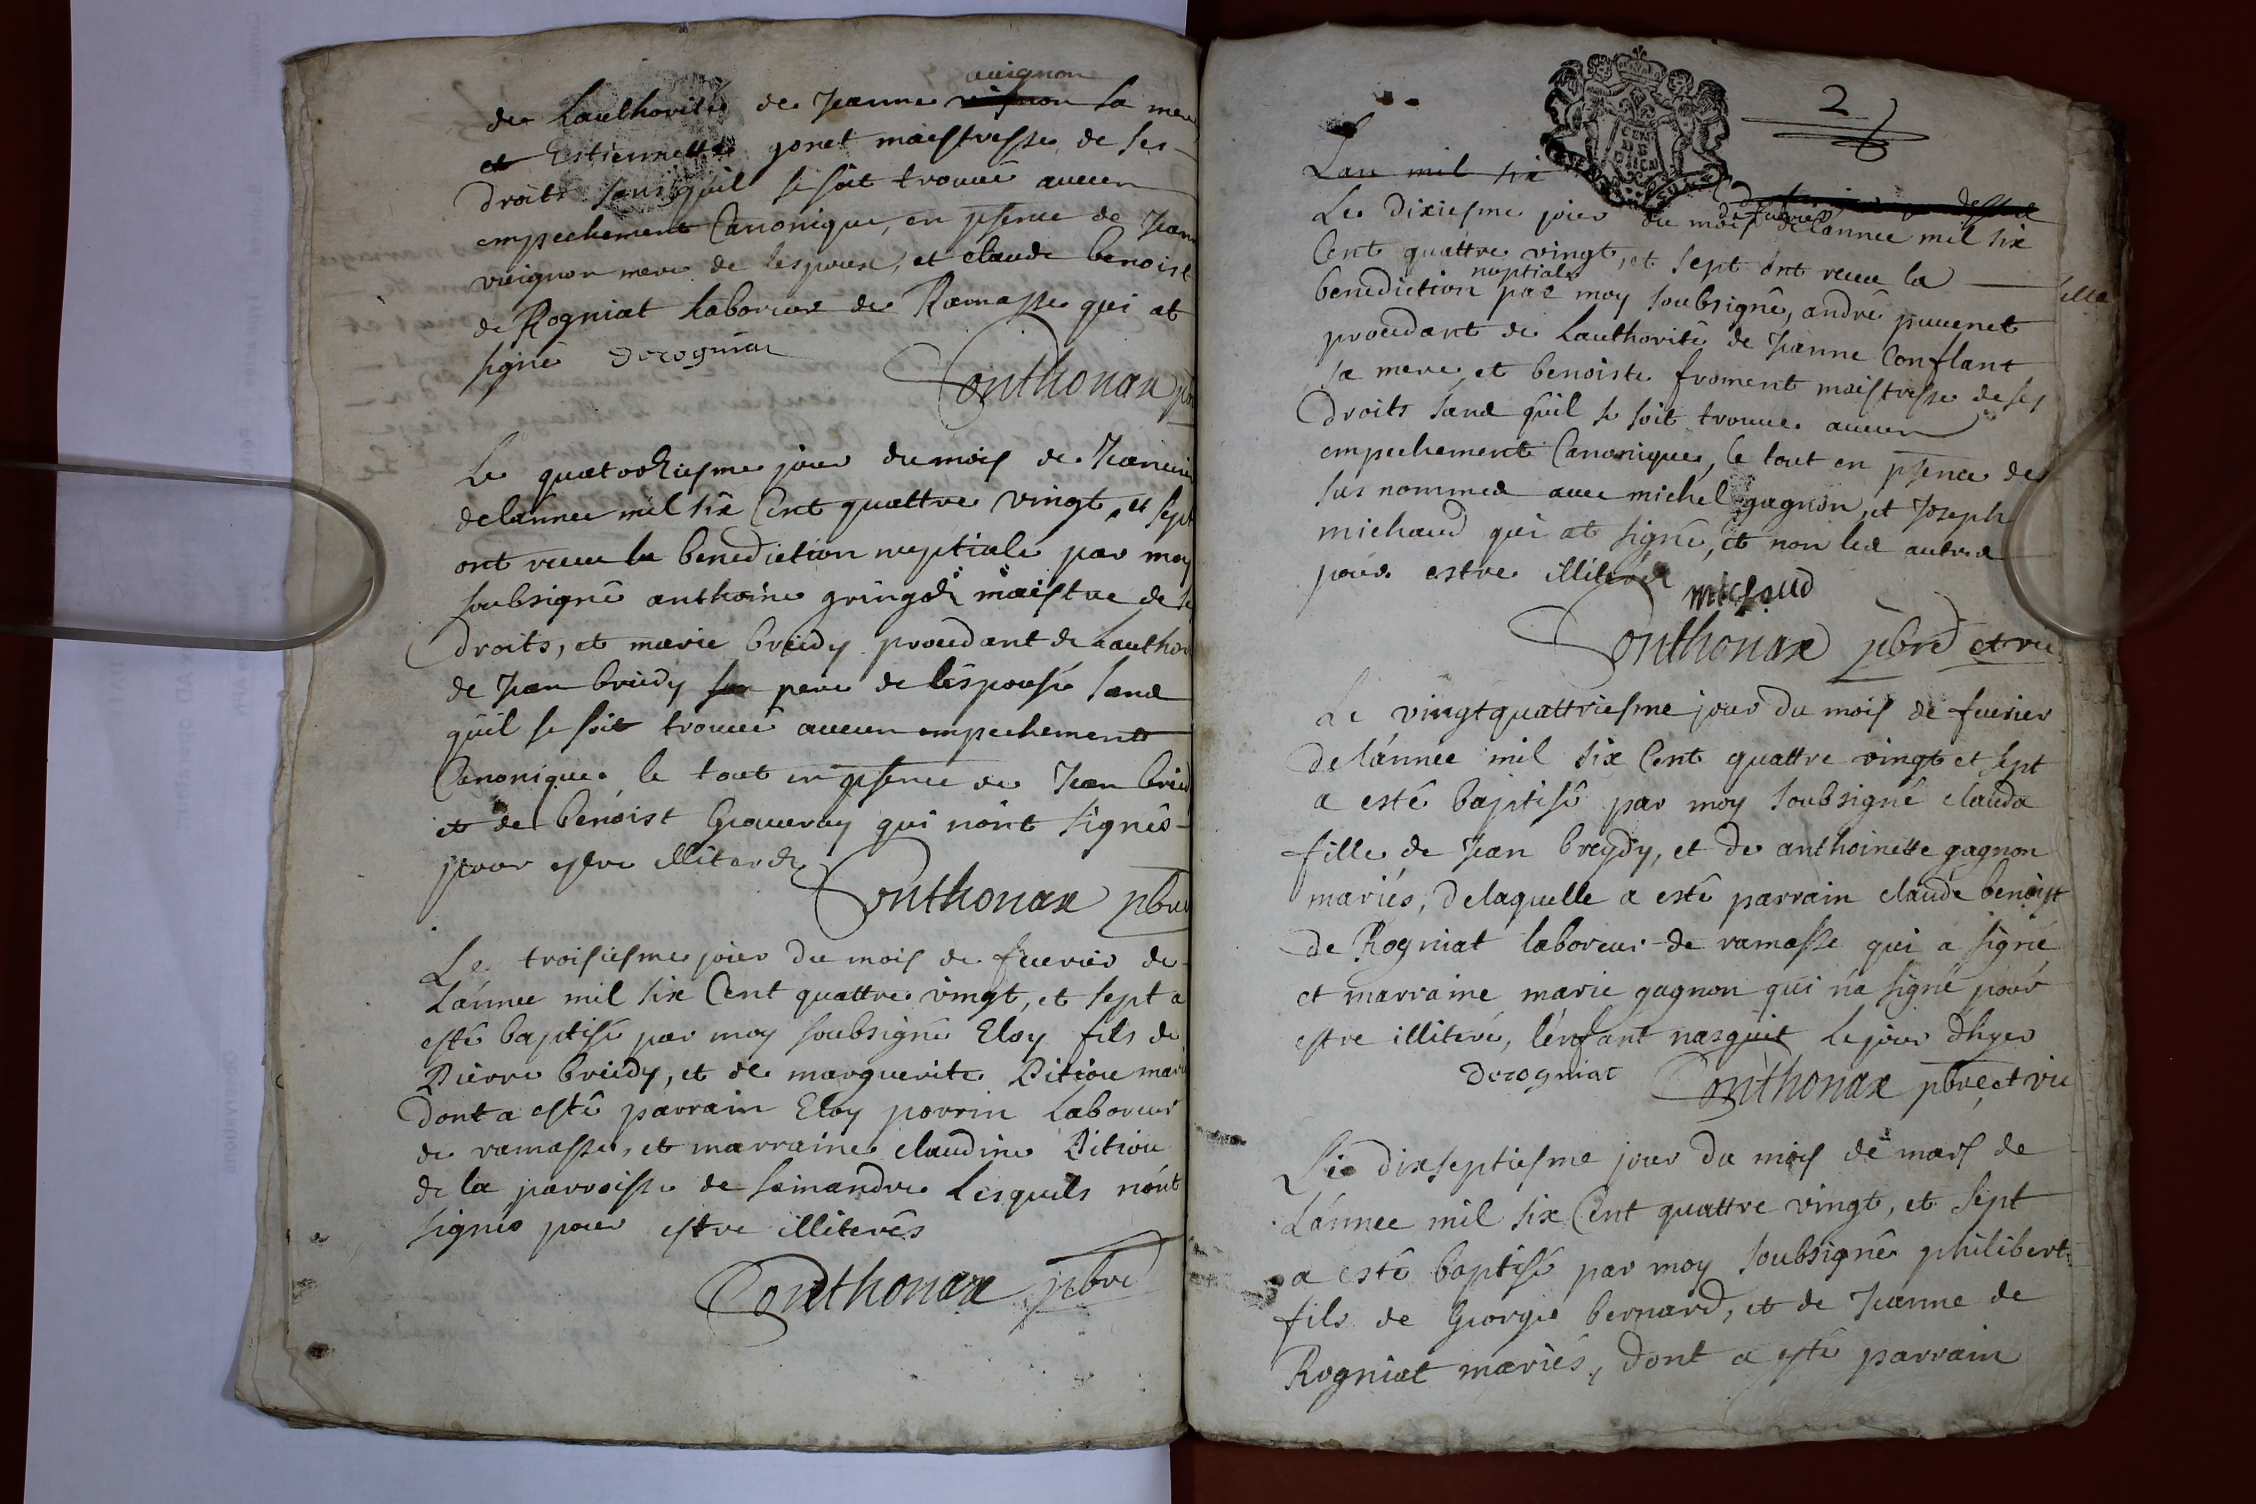 vuignon
de Lauthorité de Jeanne sa mere
et Estiennette gonet maistresse de ses
droits sans quil se soit trouué aucun
empechement Canonique, en psence de Jeane
vuignon mere de lespoux, et claude benoist
de Rogniat laboreur de Ramasse qui at
signé Derogniat
Conthonax pbre
Le quatorziesme jour du mois de Januier
delannee mil six Cent quattre vingt, et sept
ont receu la benediction nuptiale par moy
soubsigné anthoine gringoz maistre de se
droits, et marie breidy procedant de Lauthor
de Jean breidy son pere de l'espouse sans
quil se soit trouué aucun empechement
Canonique. le tout en psence de Jean breid
et de benoist Graueray qui n'ont signés
pour estre illiterez
Conthonax pbre
Le troisiesme jour du mois de feurier de
L'année mil six Cent quattre vingt, et sept a
esté baptisé par moy soubsigné Eloy fils de
Pierre breidy, et de marguerite Pitiou mari
dont a esté parrain Eloy perrin Laboreur
de ramasse, et marraine claudine Pitiou
de la parroisse de sainandre Lesquels n'ont
signés pour estre illiterés
Conthonax pbre
2
Lan mil six
Le dixiesme jour du mois de feurier delannee mil six
Cent quattre vingt, et sept ont receu la
benediction nuptiale par moy soubsigné, andré puuenet
procedant de Lauthorité de Jeanne Conflant
sa mere, et benoiste froment maistresse de ses
droits sans quil se soit trouué aucun
empechement Canonique, le tout en psence des
sus nommés auec michel gagnon, et Joseph
michaud qui at signé, et non les autres
pour estre illiterez
michaud
Conthonax pbre et vic
Le vingtquattriesme jour du mois de feurier
de l'année mil six Cent quattre vingt et sept
a esté baptisé par moy soubsigné clauda
fille de Jean breydy, et de anthoinette gagnon
mariés, delaquelle a esté parrain claude benoist
de Rogniat laboreur de ramasse qui a signé
et marraine marie gagnon qui n'a signé pour
estre illiteré, l'enfant nasquit le jour dhyer
Derogniat Conthonax pbre et vic
Le dixseptiesme jour du mois de mars de
L'annee mil six Cent quattre vingt, et sept
a esté baptisé par moy soubsigné philibert
fils de George bernard, et de Jeanne de
Rogniat mariés, dont a esté parrain